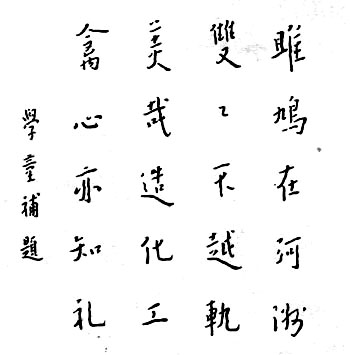 雎鳩在河洲
雙〻不越軌
美哉造化工
禽心亦知礼
學臺補題